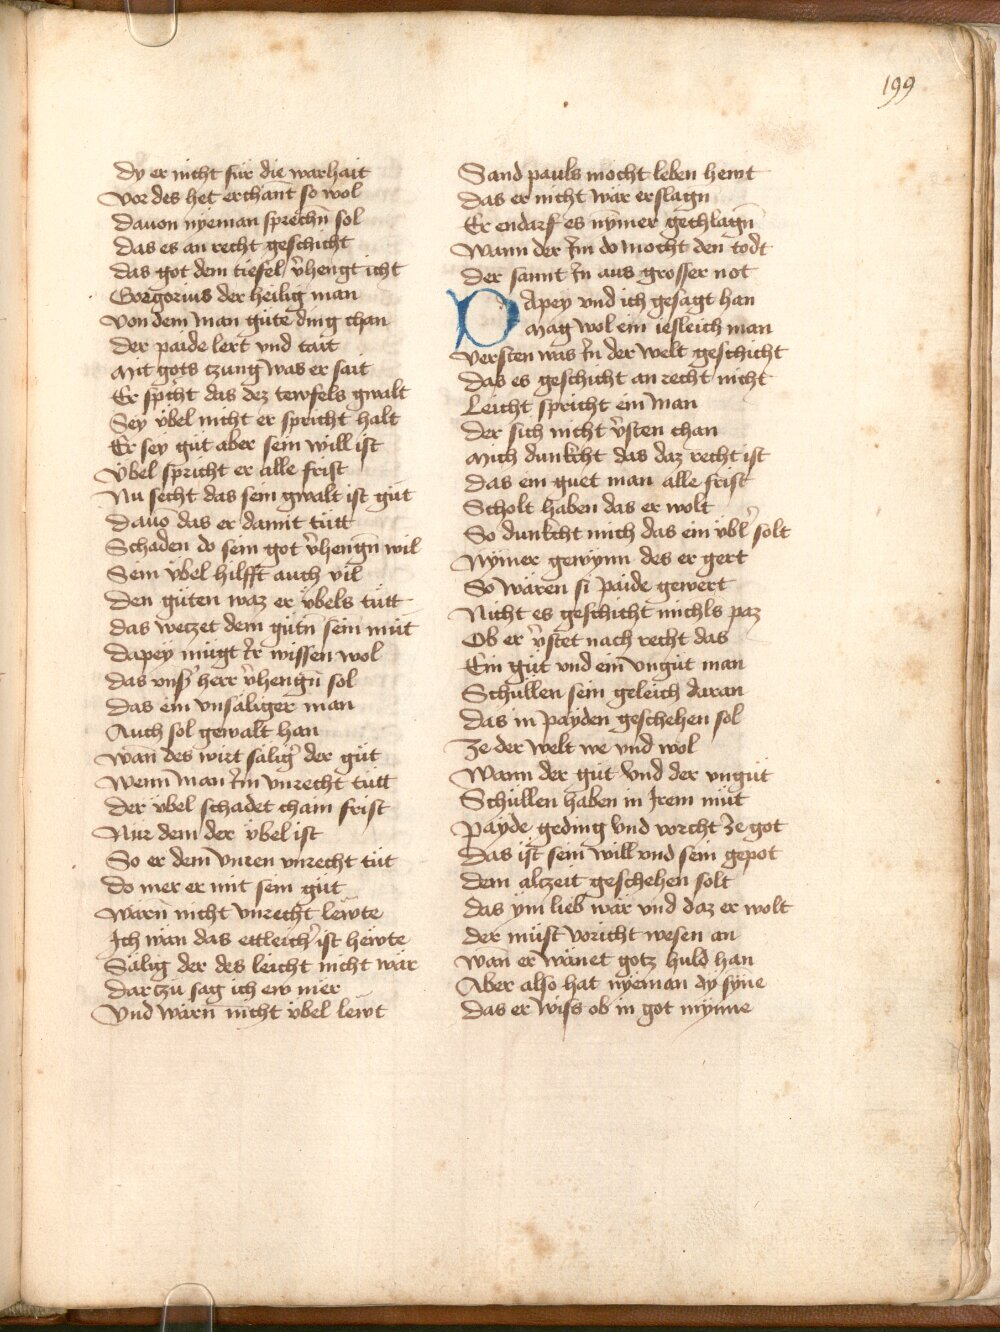 199
Dy er nicht für die warhait
Vor des het erchant so wol
Dauon nyeman sprechn̄ sol
Das es an recht geschicht
Das got dem tiefel v̉hengt icht
Gorgorius der heilig man
Von dem man güte ding chan
Der paide lert vnd tait
Mit gots czung was er sait
Er sp̉icht das dez tewfels gwalt
Sey v̈bel nicht er spricht halt
Er sey güt aber sein will ist
V̈bel spricht er alle frist
Nu secht das sein gwalt ist güt
Dauō das er damit tütt
Schaden do sein got v̉hengn̄ wil
Sein v̈bel hilfft auch vil
Den güten waz er v̈bels tütt
Das weczet dem gütn̄ sein müt
Dapey mügt ir wissen wol
Das vnsʼ herr v̉hengn̄ sol
Das ein vnsäliger man
Auch sol gewalt han
Wan̄ des wirt säligʼ der güt
Wenn man im vnrecht tütt
Der v̈bel schadet cham frist
Nür dem der v̈bel ist
So er dem vnren vnrecht tüt
Do mer er mit sein güt
Wärn̄ nicht vnrecht lewte
Ich wän das ettleichʼ ist hewte
Sälig der des leicht nicht wär
Darczü sag ich ew mer
Vnd wärn̄ nicht v̈bel lewt
Sand pauls mocht leben hewt
Das er nicht wär erslagn̄
Er endarf es nȳmer gechlagn̄
Wann der im do mocht den todt
Der sannt in aus grosser not
Dapey vnd ich gesagt han
Mag wol ein iesleich man
Versten was in der welt geschicht
Das es geschicht an recht nicht
Leicht spricht ein man
Der sich nicht v̉sten chan
Mich dunkcht das daz recht ist
Das ein guet man alle frist
Scholt haben das er wolt
So dunkcht mich das ein v̈blʼ solt
Nȳmer gewynn des er gert
So wären si paide gewert
Nicht es geschicht michls paz
Ob er v̉stet nach recht das
Ein güt vnd ein vngüt man
Schüllen sein geleich daran
Das in payden geschehen sol
Ze der welt we vnd wol
Wann der güt vnd der vngüt
Schüllen haben in Irem müt
Payde geding vnd vorcht ze got
Das ist sein will vnd sein gepot
Dem alczeit geschehen solt
Das ym lieb wär vnd daz er wolt
Der müst voricht wesen an
Wan̄ er wänet gotz huld han
Aber also hat nyeman dy syn̄e
Das er wiss ob in got mynne